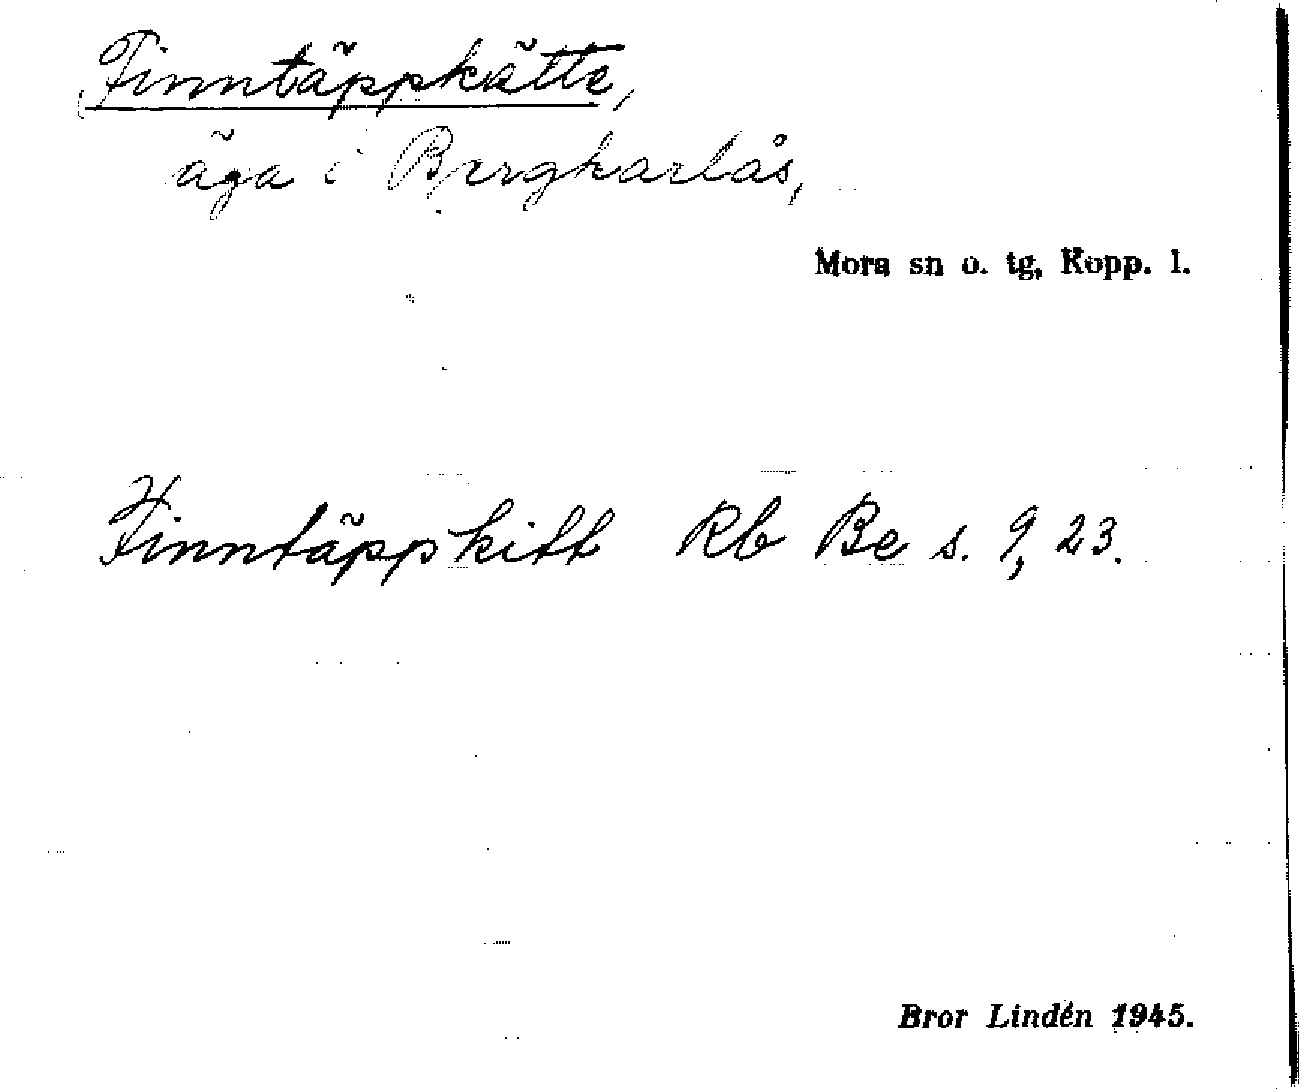 Finntäppkätte,
äga i Bergkarlås,
Mora sn o. tg, Kopp. l.
Finntäppkitt Rb Be s. 9, 23.
Bror Lindén 1945.